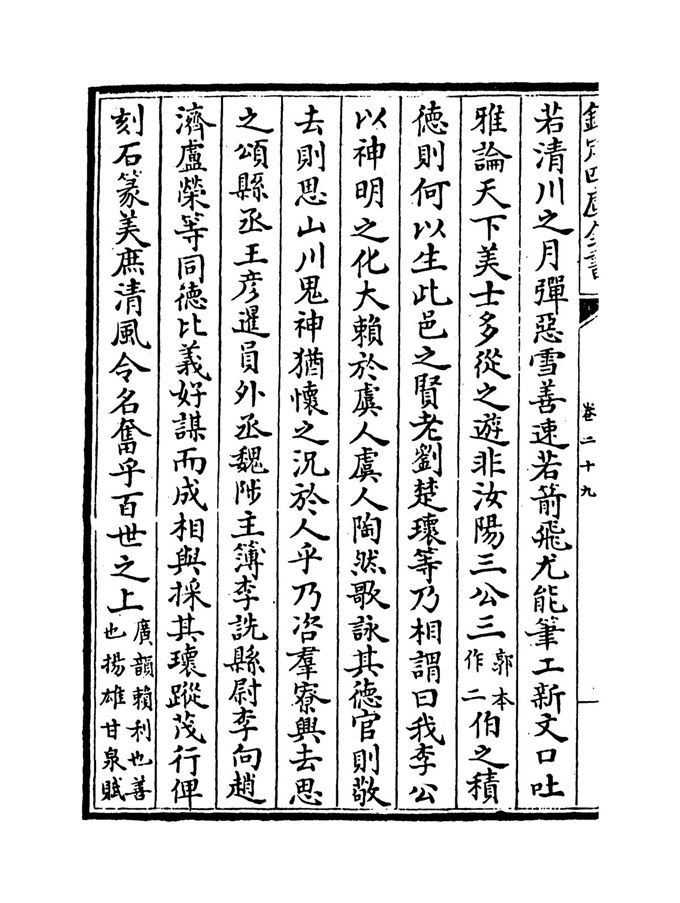 欽定四庫全書
卷二十九
若清川之月彈惡雪善速若箭飛尤能筆工新文口吐
雅論天下美士多從之遊非汝陽三公三郭本作二伯之積
德則何以生此邑之賢老劉楚瓌等乃相謂曰我李公
以神明之化大賴於虞人虞人陶然歌詠其德官則敬
去則思山川鬼神猶懷之況於人乎乃咨羣寮興去思
之頌縣丞王彥暹員外丞魏陟主簿李詵縣尉李向趙
濟盧榮等同德比義好謀而成相與採其瓌蹤茂行俾
刻石篆美庶清風令名奮乎百世之上廣韻賴利也善也揚雄甘泉賦